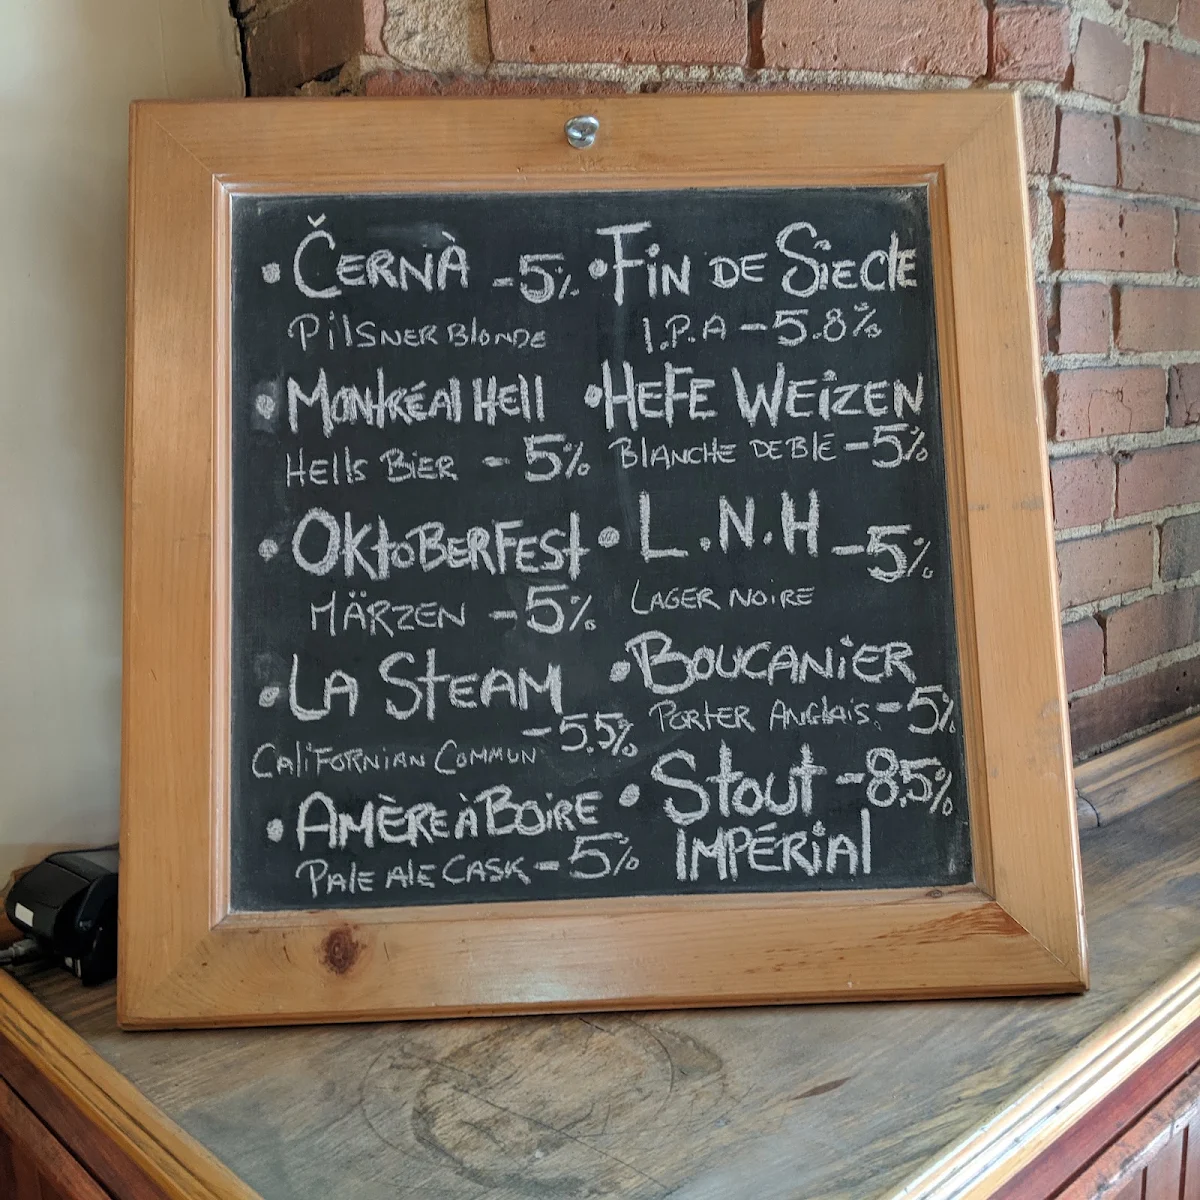 • ČERNÀ -5%
PilSNER BlONDE
• MONtRÉAl HEll
HElls BiER - 5%
• OKtoBERFESt
MÄRZEN - 5%
• LA StEAM
- 5.5%
CAliFORNiAN COMMUN
• AMÈRE À BOiRE
PAlE AlE CASK - 5%
• FiN DE SiEClE
I.P.A - 5.8%
• HEFE WEiZEN
BlANCHE DE BlÉ - 5%
• L.N.H - 5%
LAGER NOiRE
• BOUCANiER
PORTER ANGlAiS. - 5%
• Stout - 8.5%
IMPÉRiAl